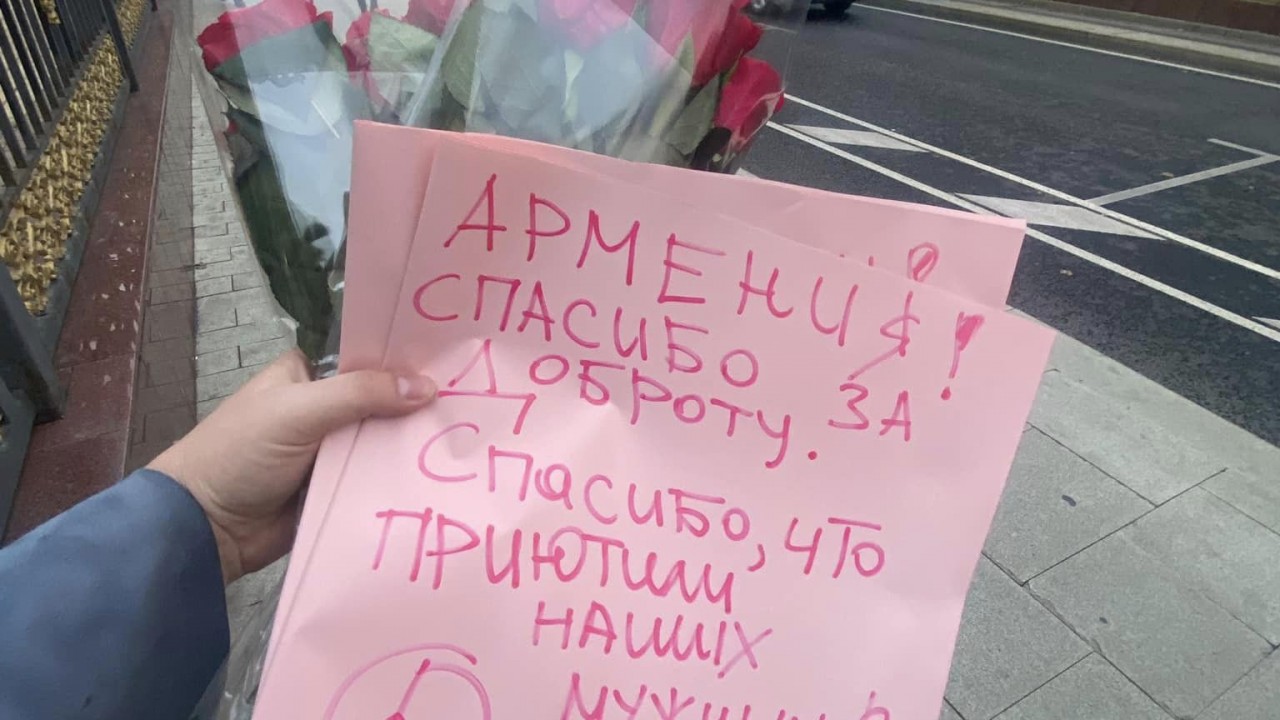 АРМЕНИЯ!
СПАСИБО ЗА
ДОБРОТУ.
Спасибо, что
ПРИЮТИЛИ
НАШИХ